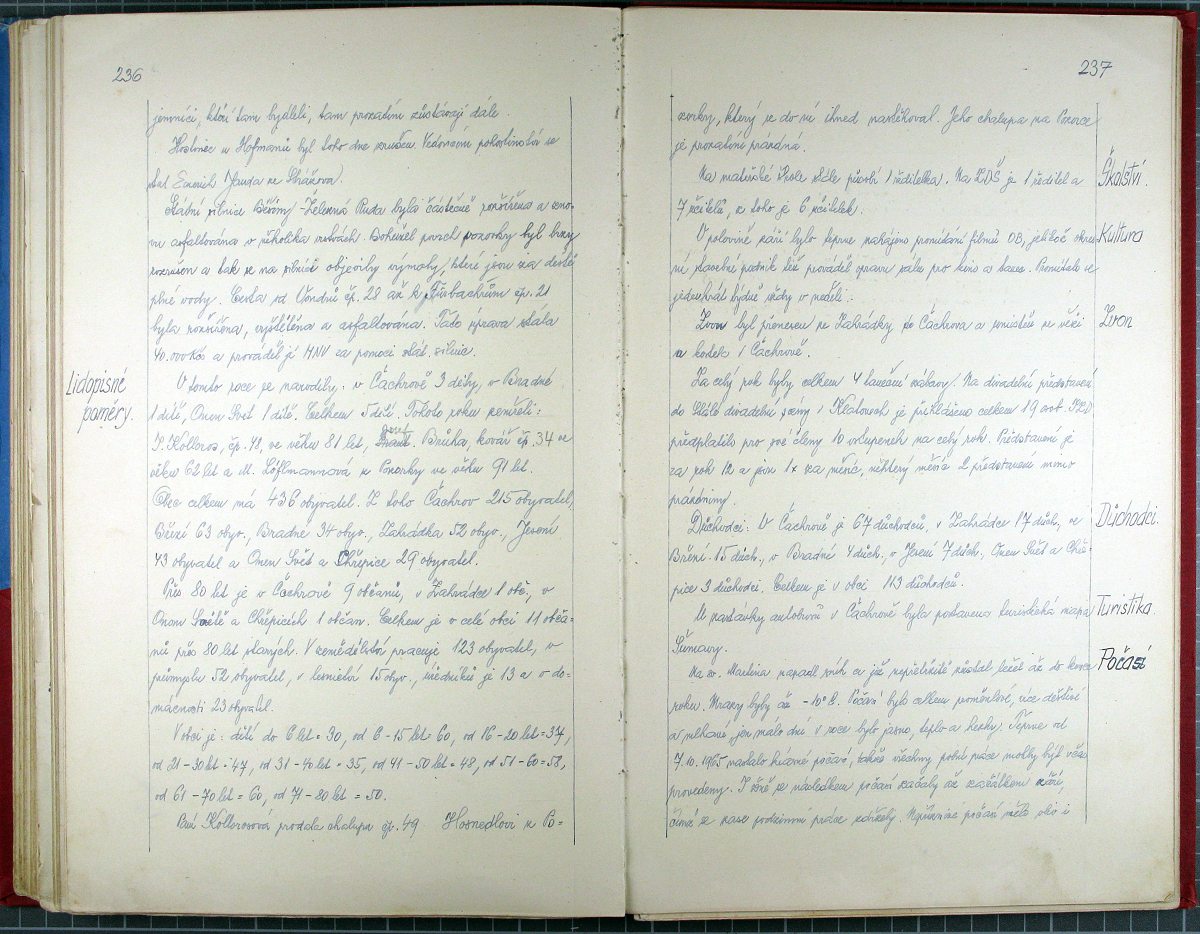 236
jemníci, kteří tam bydleli, tam prozatím zůstávají dále.
Hostinec u Hofmanů byl toho dne zrušen. Vedoucím pohostinství se
stal Jauda ze Strážova.
Státní silnice Běšiny - Železná Ruda byla částečně rozšířena a zno-
vu asfaltována v několika vrstvách. Bohužel povrch vozovky byl brzy
rozrušen a tak se na silnici objevily výmoly, které jsou za deště
plné vody. Cesta od Vondrů čp. 28 až k čp. 21
byla rozšířena, vyštětěna a asfaltována. Tato úprava stála
40.000 Kčs a prováděl ji MNV za pomoci stát. silnic.
Lidopisné
poměry.
V tomto roce se narodily: v Čachrově 3 děti, v Bradné
1 dítě, Onen Svět 1 dítě. Celkem 5 dětí. Tohoto roku zemřeli:
Kolloros, čp. 41, ve věku 81 let, Brůha, kovář čp. 34 ve
věku 62 let a M. Löflmannová z Ponorky ve věku 91 let.
Obec celkem má 436 obyvatel. Z toho Čachrov 215 obyvatel,
Březí 63 obyv., Bradné 34 obyv., Zahrádka 52 obyv., Jesení
43 obyvatel a Onen Svět a Chřepice 29 obyvatel.
Přes 80 let je v Čachrově 9 občanů, v Zahrádce 1 obč., v
Onom Světě a Chřepicích 1 občan. Celkem je v celé obci 11 obča-
nů přes 80 let starých. V zemědělství pracuje 123 obyvatel, v
průmyslu 52 obyvatel, v lesnictví 15 obyv., úředníků je 13 a v do-
mácnosti 23 obyvatel.
V obci je: dětí do 6 let = 30, od 6 - 15 let = 60, od 16 - 20 let = 37,
od 21 - 30 let = 47, od 31 - 40 let = 35, od 41 - 50 let = 48, od 51 - 60 = 58,
od 61 - 70 let = 60, od 71 - 80 let = 50.
Paní Kollorosová prodala chalupu čp. 49 Hosnedlovi z Po-
237
zorky, který se do ní ihned nastěhoval. Jeho chalupa na Pozorce
je prozatím prázdná.
Školství.
Na mateřské škole stále působí 1 ředitelka. Na ZDŠ je 1 ředitel a
7 učitelů, z toho je 6 učitelek.
Kultura
V polovině září bylo teprve zahájeno promítání filmů OB, jelikož okres-
ní stavební podnik též prováděl opravu sálu pro kino a tanec. Promítalo se
jedenkrát týdně vždy v neděli.
Zvon
Zvon byl přenesen ze Zahrádky do Čachrova a umístěn ve věži
u kostela v Čachrově.
Za celý rok byly celkem 4 taneční zábavy. Na divadelní představení
do Stálé divadelní scény v Klatovech je přihlášeno celkem 19 osob. JZD
předplatilo pro své členy 10 vstupenek na celý rok. Představení je
za rok 12 a jsou 1x za měsíc, některý měsíc 2 představení mimo
prázdniny.
Důchodci.
Důchodci. V Čachrově je 67 důchodců, v Zahrádce 17 důch., ve
Březí 15 důch., v Bradné 4 důch., v Jesení 7 důch., Onen Svět a Chře-
pice 3 důchodci. Celkem je v obci 113 důchodců.
Turistika.
U zastávky autobusů v Čachrově byla postavena turistická mapa
Šumavy.
Počasí
Na sv. Martina napadl sníh a již nepřetržitě zůstal ležet až do konce
roku. Mrazy byly až -10° C. Počasí bylo celkem proměnlivé, více deštivé
a mlhavé, jen málo dní v roce bylo jasno, teplo a hezky. Teprve od
7. 10. 1965 nastalo krásné počasí, takže všechny polní práce mohly být včas
provedeny. I žně se následkem počasí začaly až začátkem září,
čímž se zase podzimní práce zdržely. Nepříznivé počasí mělo vliv i